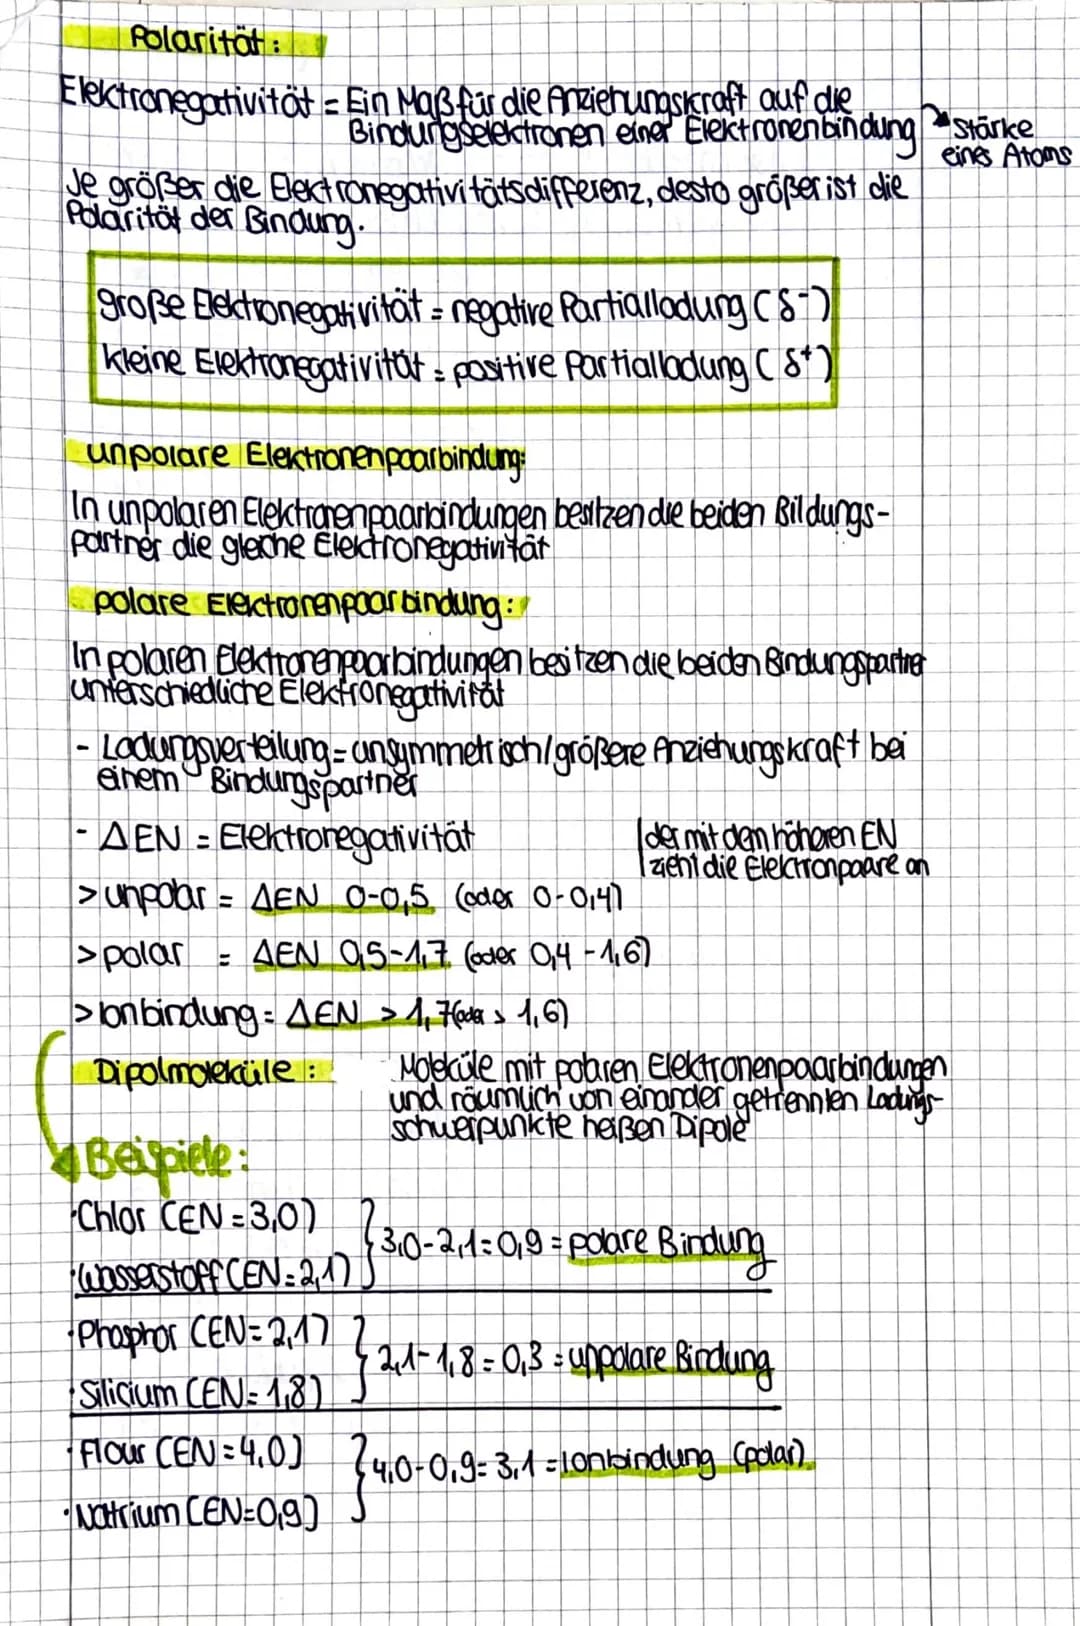 Polarität:
Elektronegativität = Ein Maß für die Anziehungskraft auf die
Bindungselektronen einer Elektronenbindung
Stärke
eines Atoms
Je größer die Elektronegativitätsdifferenz, desto größer ist die
Polarität der Bindung.
große Elektronegativität = negative Partialladung (δ-)
kleine Elektronegativität = positive Partialladung (δ+)
unpolare Elektronenpaarbindung:
In unpolaren Elektronenpaarbindungen besitzen die beiden Bildungs-
partner die gleche Elektronegativität
polare Elektronenpaarbindung:
In polaren Elektronenpaarbindungen besitzen die beiden Bindungspartner
unterschiedliche Elektronegativität
- Ladungsverteilung = unsymmetrisch/größere Anziehungskraft bei
einem Bindungspartner
- ΔEN = Elektronegativität
der mit dem höheren EN
zieht die Elektronpaare an
> unpolar = ΔEN 0-0,5 (oder 0-0,4)
> polar = ΔEN 0,5-1,7 (oder 0,4-1,6)
> Ionbindung = ΔEN > 1,7 (oder > 1,6)
Dipolmoleküle: Moleküle mit polaren Elektronenpaarbindungen
und räumlich von einander getrennten Ladungs-
schwerpunkte heißen Dipole
Beispiele:
·Chlor (EN=3,0)
·Wasserstoff (EN=2,1)
3,0-2,1=0,9 = polare Bindung
·Phosphor (EN=2,1)
·Silicium (EN=1,8)
2,1-1,8=0,3 = unpolare Bindung
·Flour (EN=4,0)
·Natrium (EN=0,9)
4,0-0,9=3,1 = Ionbindung (polar)